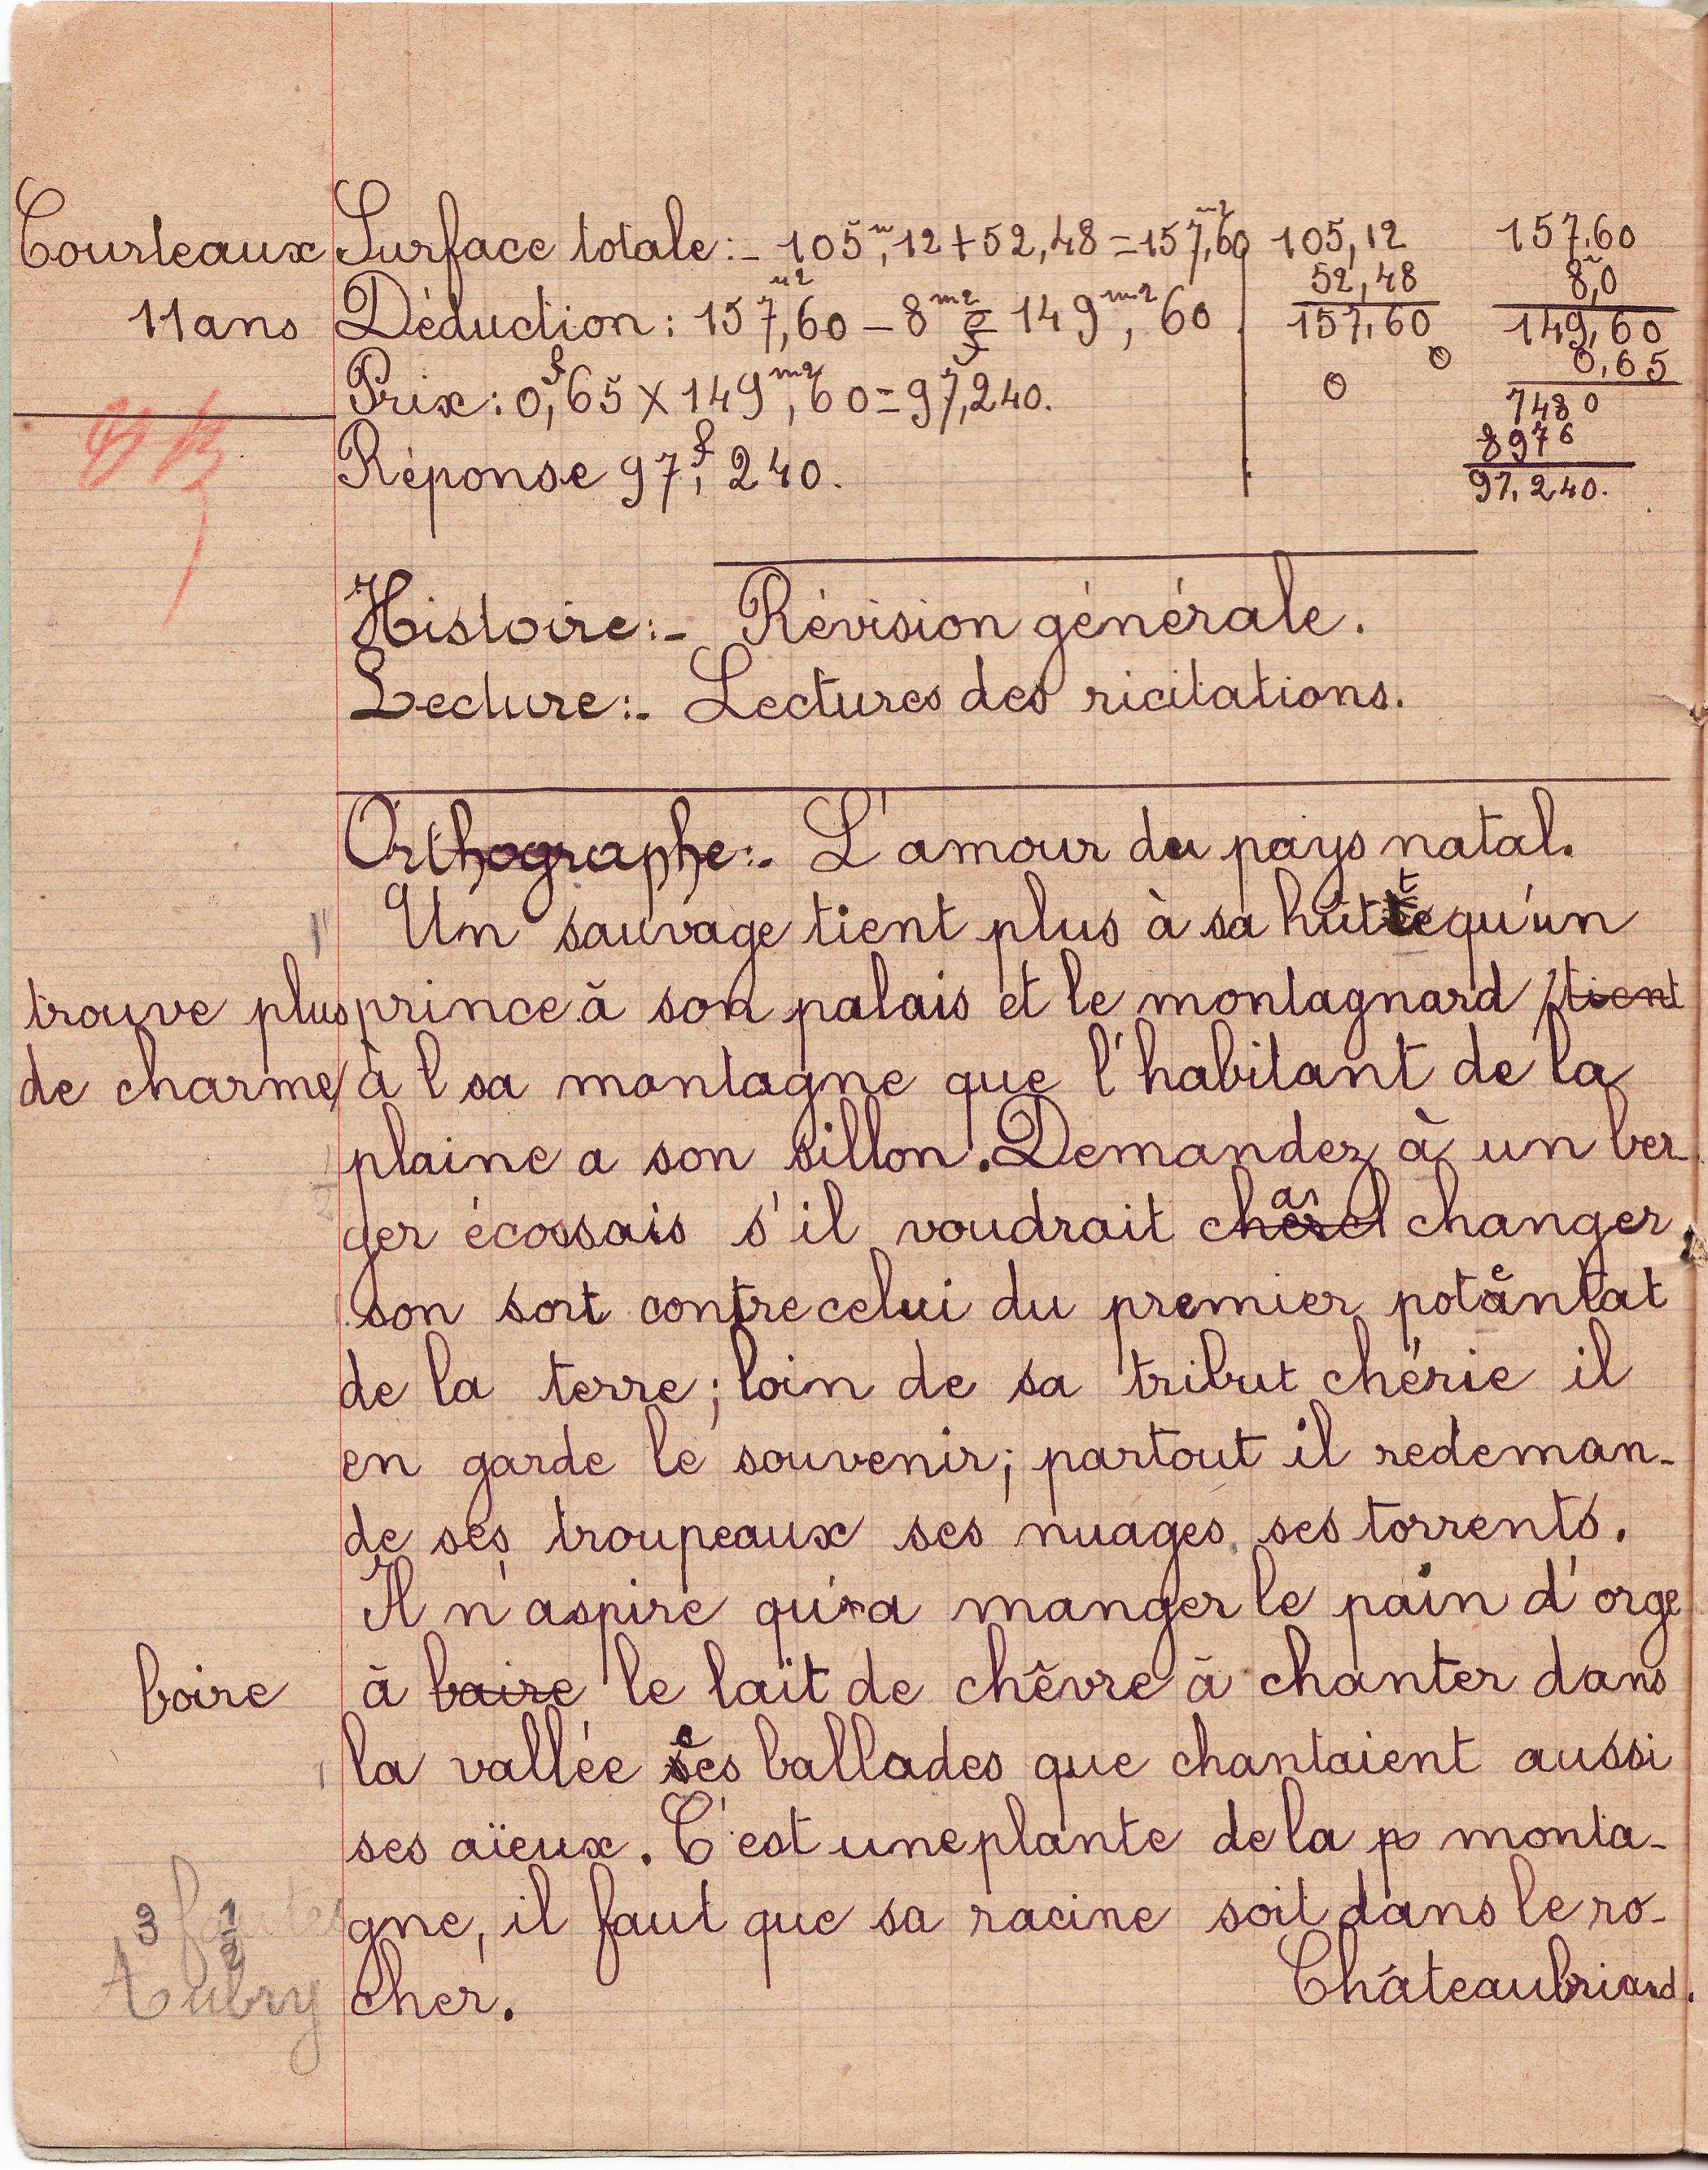 Courteaux Surface totale:- 105m,12+52,48=157m2,60 105,12 157,60
52,48 8,0
11 ans Déduction: 157m2,60-8m2 = 149m2,60 157,60 149,60
0 0,65
Prix: 0f,65 × 149m2,60=97,240. 0 7480
8976
Réponse 97f,240. 97,240.
Histoire:- Révision générale.
Lecture:- Lectures des ricitations.
Orthographe:- L'amour du pays natal.
Un sauvage tient plus à sa hutte qu'un
trouve plus prince à son palais et le montagnard tient
de charme à l sa montagne que l'habitant de la
plaine a son sillon. Demandez à un ber-
ger écossais s'il voudrait changer
son sort contre celui du premier potentat
de la terre; loin de sa tribut chérie il
en garde le souvenir; partout il redeman-
de ses troupeaux ses nuages, ses torrents.
Il n'aspire qu'a manger le pain d'orge
boire à baire le lait de chêvre à chanter dans
la vallée ces ballades que chantaient aussi
ses aïeux. C'est une plante de la p monta-
gne, il faut que sa racine soit dans le ro-
3 fautes 1/2
Aubry cher. Châteaubriand.